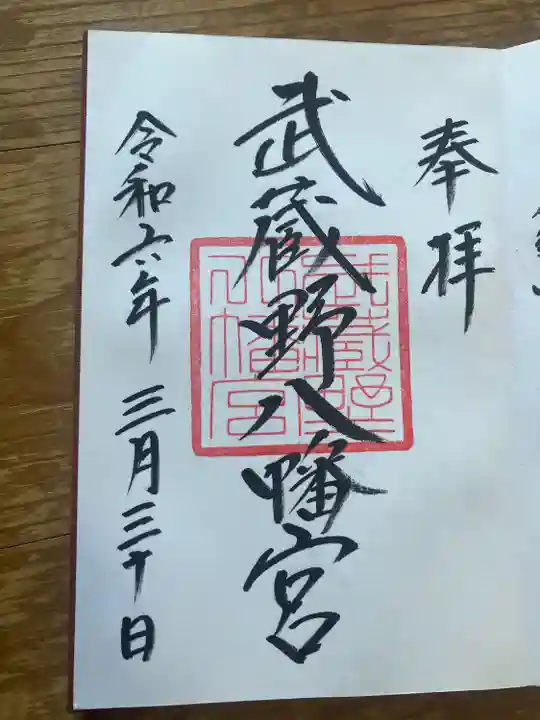 奉拝
武蔵野八幡宮
武蔵野
八幡宮
令和六年 三月三十日